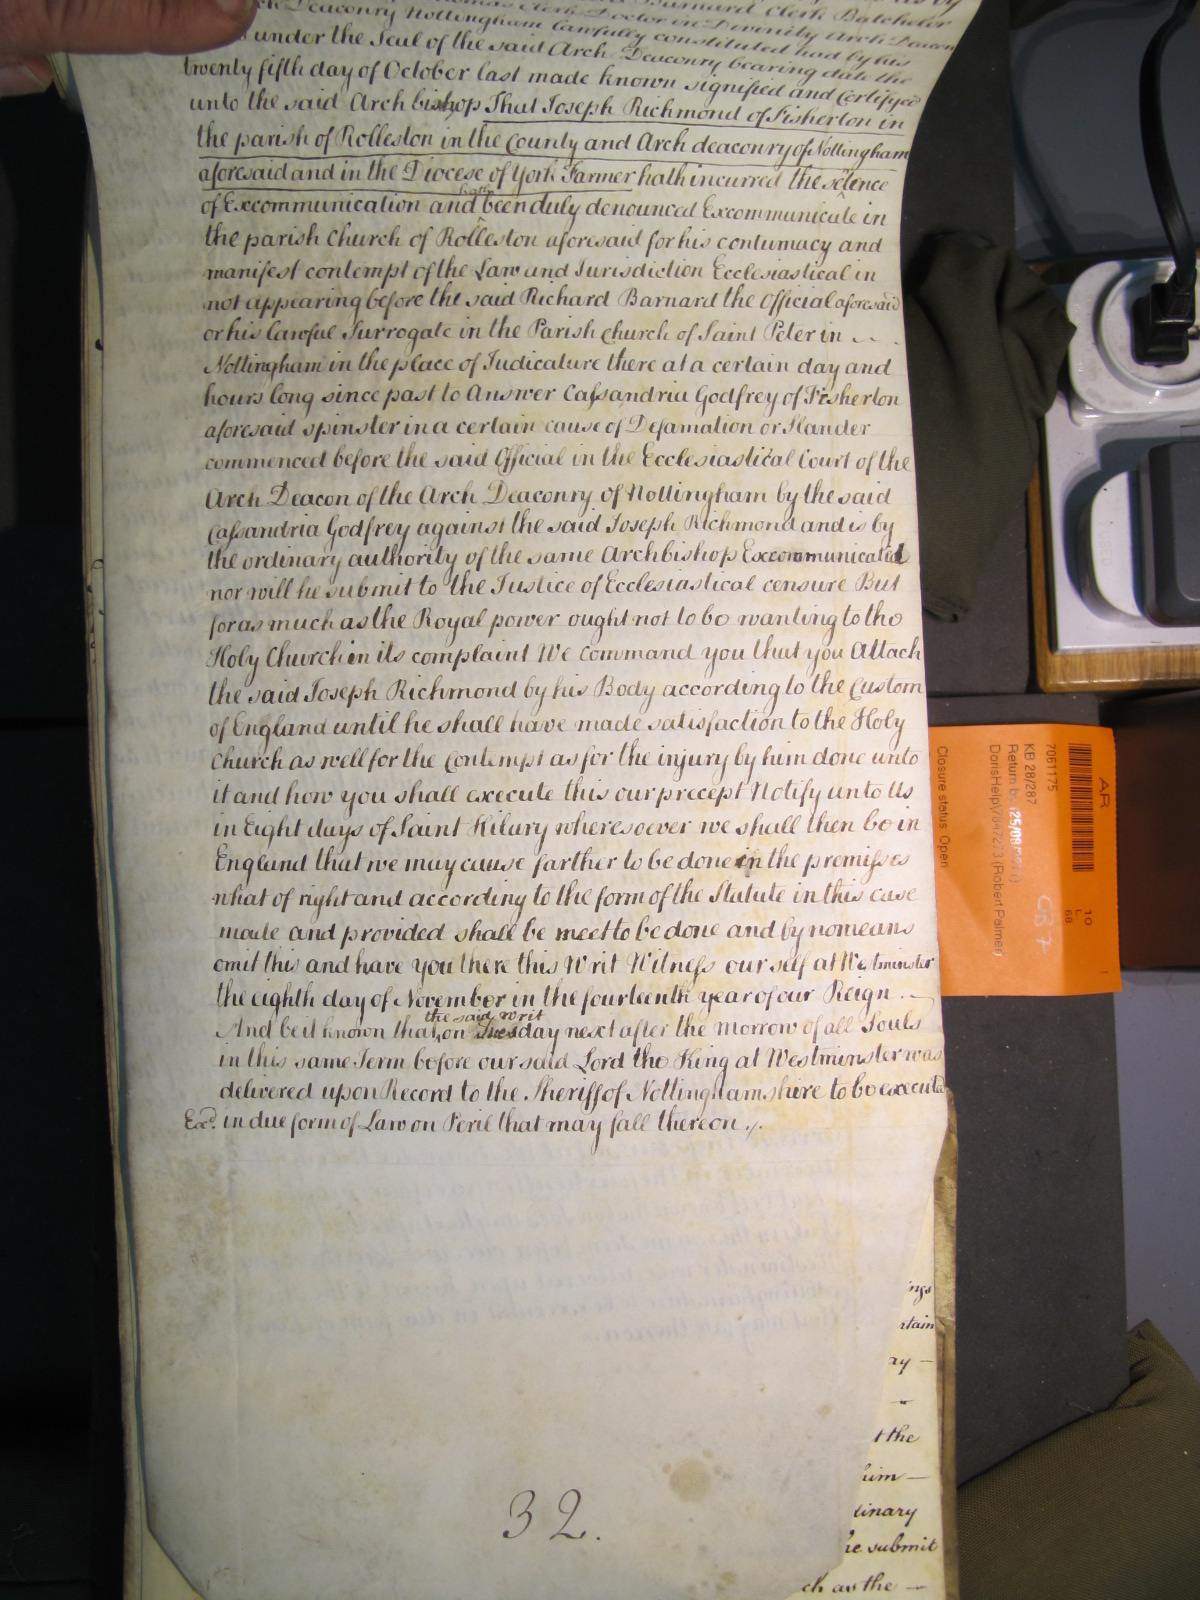 Barnard Clerk Batchelor
Clerk Doctor in Divinity Arch Deacon
Deaconry Nottingham lawfully constituted had by his
under the Seal of the said Arch Deaconry bearing date the
twenty fifth day of October last made known signified and Certifyed
unto the said Arch bishop That Joseph Richmond of Fisherton in
the parish of Rolleston in the County and Arch deaconry of Nottingham
aforesaid and in the Diocese of York Farmer hath incurred the setence
of Excommunication and hath been duly denounced Excommunicate in
the parish Church of Rolleston aforesaid for his contumacy and
manifest contempt of the Law and Jurisdiction Ecclesiastical in
not appearing before the said Richard Barnard the Official aforesaid
or his lawful Surrogate in the Parish Church of Saint Peter in
Nottingham in the place of Judicature there at a certain day and
hours long since past to Answer Cassandria Godfrey of Fisherton
aforesaid spinster in a certain cause of Defamation or Slander
commenced before the said Official in the Ecclesiastical Court of the
Arch Deacon of the Arch Deaconry of Nottingham by the said
Cassandria Godfrey against the said Joseph Richmond and is by
the ordinary authority of the same Archbishop Excommunicated
nor will he submit to the Justice of Ecclesiastical censure But
for as much as the Royal power ought not to be wanting to the
Holy Church in its complaint We command you that you Attach
the said Joseph Richmond by his Body according to the Custom
of England until he shall have made satisfaction to the Holy
Church as well for the Contempt as for the injury by him done unto
it and how you shall execute this our precept Notify unto Us
in Eight days of Saint Hilary wheresoever we shall then be in
England that we may cause farther to be done in the premisses
what of right and according to the form of the Statute in this case
made and provided shall be meet to be done and by no means
omit this and have you there this Writ Witness our self at Westminster
the eighth day of November in the fourteenth year of our Reign.
And be it known that the said Writ on Tuesday next after the morrow of all Souls
in this same Term before our said Lord the King at Westminster was
delivered upon Record to the Sheriff of Nottinghamshire to be executed
Exd. in due form of Law on Peril that may fall thereon.
32.
ings
rtain
ay
t the
him
dinary
he submit
ch as the
AR
7061175
KB 28/287
Return by (25/09/
DorisHelp\7847273 (Robert Palmer)
Closure status Open
10
L
68